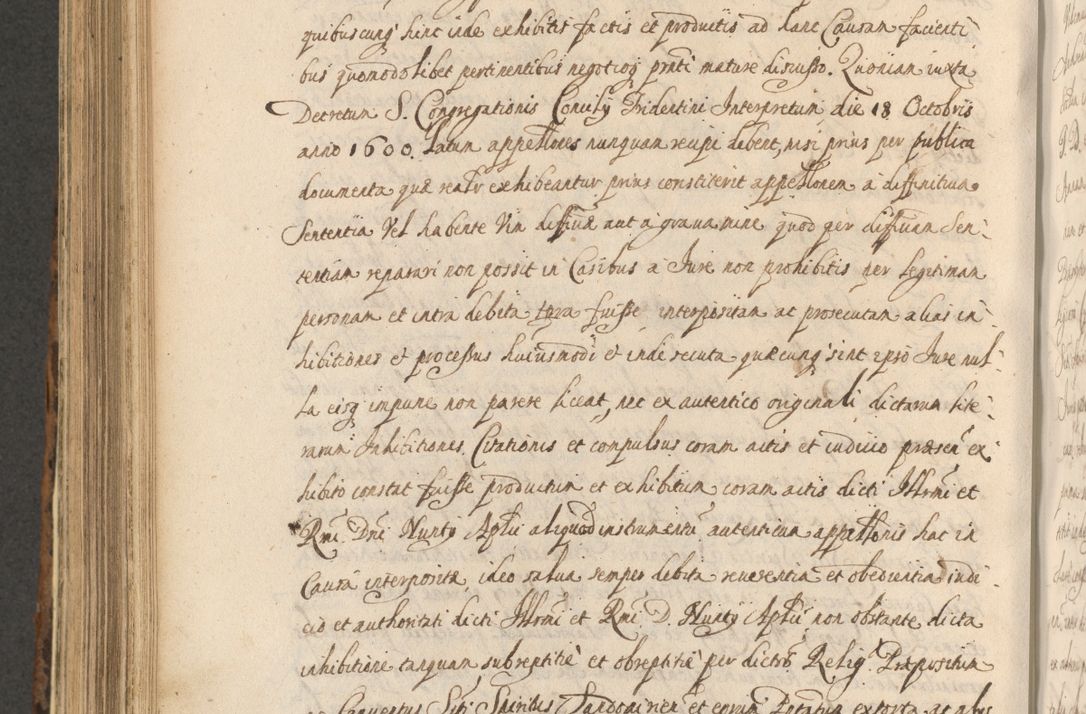 quibuscunq hinc inde exhibitis factis et productis ad hanc Causam facienti
bus quomodolibet pertinentibus negotioq prńti mature discusso. Quoniam iuxta
Decretum S. Congregationis Concilij Tridentini Interpretum die 18 Octobris
anno 1600. latum appellões nunquam recipi debent, nisi prius per publica
documenta quæ realr exhibeantur prius constiterit appellõnem à diffinitiua
Sententia Vel habente Vim diffiuæ aut a grauamine quod per diffiuam Sen-
tentiam reparari non possit in Casibus a Jure non prohibitis per legitimam
personam et intra debita tpra fuisse interpositam ac prosecutam alias in-
hibitiones et processus huiusmodi et inde secuta quæcunq sint ipso Jure nul-
la eisq impune non parere liceat, nec ex autentico originali dictarum lite-
rarum Inhibitiones Citationis et compulsus coram actis et iudicio præsen ex
hibito constat fuisse productum et exhibitum coram actis dicti Illrmi et
Rmi Dni Nuntij Aplici aliquod instrumentu autenticum appellonis hac in
Causa interposita ideo salua semper debita reuerentia et obedientia iudi
cio et authoritati dicti Illrmi et Rmi D. Nuntij Aplici non obstante dicta
inhibitione tanquam subreptitie et obreptitie per dictos Relig. Præpositum
Conuentus Sti Spiritus Sandomirien et eorum extorta ac alijs